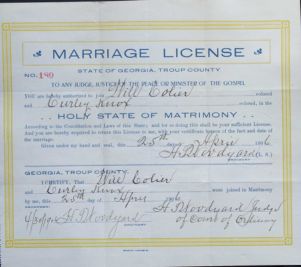 MARRIAGE LICENSE
STATE OF GEORGIA, TROUP COUNTY
NO. 180
TO ANY JUDGE, JUSTICE OF THE PEACE OR MINISTER OF THE GOSPEL
YOU are hereby authorized to join Will Colier colored
and Curley Knox colored, in the
HOLY STATE OF MATRIMONY
According to the Constitution and Laws of this State; and for so doing this shall be your sufficient License. And
you are hereby required to return this License to me, with your certificate hereon of the fact and date of
the marriage.
Given under my hand and seal, this 25th day of April
H. P. Woodyard (L. S.)
GEORGIA, TROUP COUNTY.
I CERTIFY, That Will Colier
and Curley Knox were joined in Matrimony
by me, this 25th day of April
H. P. Woodyard Judge
H. P. Woodyard of Court of Ordinary